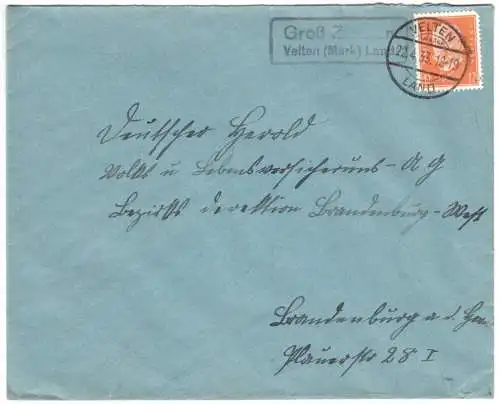 Groß Z
Velten (Mark) Land
VELTEN
4.33.
LAND
Deutscher Herold
Volks u Lebensversicheruns-AG
Bezirks direktion Brandenburg-West
Brandenburg a. d.
Plauerstr 28 I